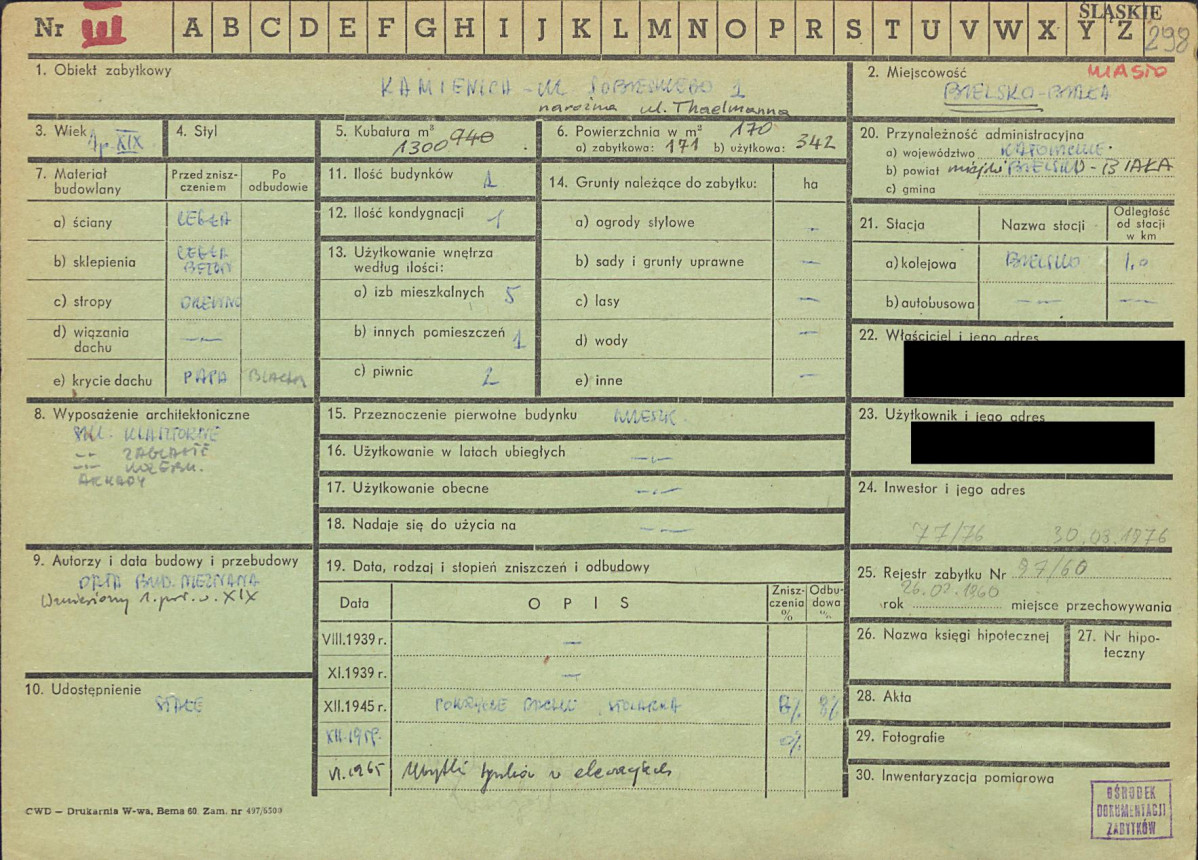 Nr III A B C D E F G H I J K L M N O P R S T U V W X Y Z
ŚLĄSKIE
298
1. Obiekt zabytkowy
KAMIENICA - ul. SOBIESKIEGO 1
narożna ul. Thaelmanna
2. Miejscowość
MIASTO
BIELSKO-BIAŁA
3. Wiek
1p. XIX
4. Styl
5. Kubatura m³
1300 940
6. Powierzchnia w m² 170
a) zabytkowa: 171 b) użytkowa: 342
7. Materiał budowlany
Przed zniszczeniem
Po odbudowie
a) ściany CEGŁA
b) sklepienia CEGŁA
BETON
c) stropy DREWNO
d) wiązania dachu -"-
e) krycie dachu PAPA BLACHA
8. Wyposażenie architektoniczne
SKL. KLASZTORNE
-"- ŻAGLASTE
-"- KOLEBK.
ARKADY
9. Autorzy i data budowy i przebudowy
DATA BUD. NIEZNANA
Wzniesiony 1. poł. w. XIX
10. Udostępnienie
STAŁE
11. Ilość budynków 1
12. Ilość kondygnacji 1
13. Użytkowanie wnętrza według ilości:
a) izb mieszkalnych 5
b) innych pomieszczeń 1
c) piwnic 2
14. Grunty należące do zabytku: ha
a) ogrody stylowe –
b) sady i grunty uprawne –
c) lasy –
d) wody –
e) inne –
15. Przeznaczenie pierwotne budynku MIESZK.
16. Użytkowanie w latach ubiegłych -"-
17. Użytkowanie obecne -"-
18. Nadaje się do użycia na -"-
19. Data, rodzaj i stopień zniszczeń i odbudowy
Data OPIS Zniszczenia % Odbudowa %
VIII.1939 r. –
XI.1939 r. –
XII.1945 r. POKRYCIE DACHU STOLARKA
XII.1959.
VI.1965 Ubytki tynków w elewacjach
20. Przynależność administracyjna
a) województwo KATOWICE.
b) powiat miejski BIELSKO-BIAŁA
c) gmina
21. Stacja
Nazwa stacji
Odległość od stacji w km
a) kolejowa BIELSKO 1,0
b) autobusowa -"- -"-
22. Właściciel i jego adres
23. Użytkownik i jego adres
24. Inwestor i jego adres
77/76 30.03.1976
25. Rejestr zabytku Nr 87/60
26.02.1960
rok miejsce przechowywania
26. Nazwa księgi hipotecznej
27. Nr hipoteczny
28. Akta
29. Fotografie
30. Inwentaryzacja pomiarowa
OŚRODEK
DOKUMENTACJI
ZABYTKÓW
CWD — Drukarnia W-wa, Bema 60. Zam. nr 497/6500